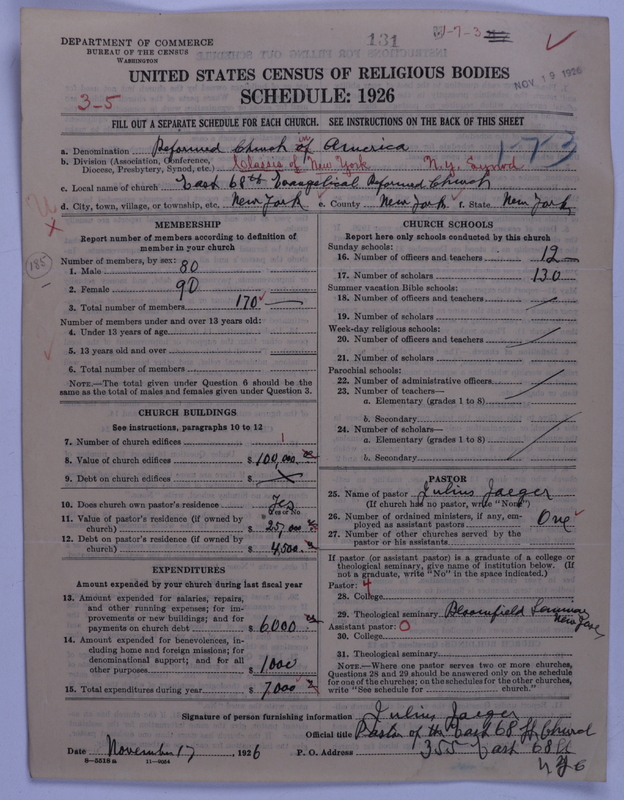 DEPARTMENT OF COMMERCE
BUREAU OF THE CENSUS
WASHINGTON
131
1-7-3
NOV 19 1926
UNITED STATES CENSUS OF RELIGIOUS BODIES
SCHEDULE: 1926
3-5
FILL OUT A SEPARATE SCHEDULE FOR EACH CHURCH. SEE INSTRUCTIONS ON THE BACK OF THIS SHEET
a. Denomination Reformed Church in America
1-73
b. Division (Association, Conference, Diocese, Presbytery, Synod, etc.) Classis of New York N.Y. Synod
c. Local name of church East 68th Evangelical Reformed Church
d. City, town, village, or township, etc. New York e. County New York f. State New York
MEMBERSHIP
Report number of members according to definition of
member in your church
185
Number of members, by sex:
1. Male 80
2. Female 90
3. Total number of members 170
Number of members under and over 13 years old:
4. Under 13 years of age
5. 13 years old and over
6. Total number of members
NOTE.—The total given under Question 6 should be the
same as the total of males and females given under Question 3.
CHURCH BUILDINGS
See instructions, paragraphs 10 to 12
7. Number of church edifices 1
8. Value of church edifices $ 100,000.
9. Debt on church edifices $
10. Does church own pastor's residence? Yes
Yes or No
11. Value of pastor's residence (if owned by
church) $ 25,000
12. Debt on pastor's residence (if owned by
church) $ 4,500.
EXPENDITURES
Amount expended by your church during last fiscal year
13. Amount expended for salaries, repairs,
and other running expenses; for im-
provements or new buildings; and for
payments on church debt $ 6000
14. Amount expended for benevolences, in-
cluding home and foreign missions; for
denominational support; and for all
other purposes $ 1000
15. Total expenditures during year $ 7,000
CHURCH SCHOOLS
Report here only schools conducted by this church
Sunday schools:
16. Number of officers and teachers 12
17. Number of scholars 130
Summer vacation Bible schools:
18. Number of officers and teachers
19. Number of scholars
Week-day religious schools:
20. Number of officers and teachers
21. Number of scholars
Parochial schools:
22. Number of administrative officers
23. Number of teachers—
a. Elementary (grades 1 to 8)
b. Secondary
24. Number of scholars—
a. Elementary (grades 1 to 8)
b. Secondary
PASTOR
25. Name of pastor Julius Jaeger
(If church has no pastor, write "None")
26. Number of ordained ministers, if any, em-
ployed as assistant pastors One
27. Number of other churches served by the
pastor or his assistants
If pastor (or assistant pastor) is a graduate of a college or
theological seminary, give name of institution below. (If
not a graduate, write "No" in the space indicated.)
Pastor: 4
28. College
29. Theological seminary Bloomfield Seminary
New Jersey
Assistant pastor: 0
30. College
31. Theological seminary
NOTE.—Where one pastor serves two or more churches,
Questions 28 and 29 should be answered only on the schedule
for one of the churches; on the schedules for the other churches,
write "See schedule for church."
Signature of person furnishing information Julius Jaeger
Official title Pastor of the East 68 St Church
Date November 17, 1926 P. O. Address 355 East 68 St
N Y C
8-5518 a 11-9064